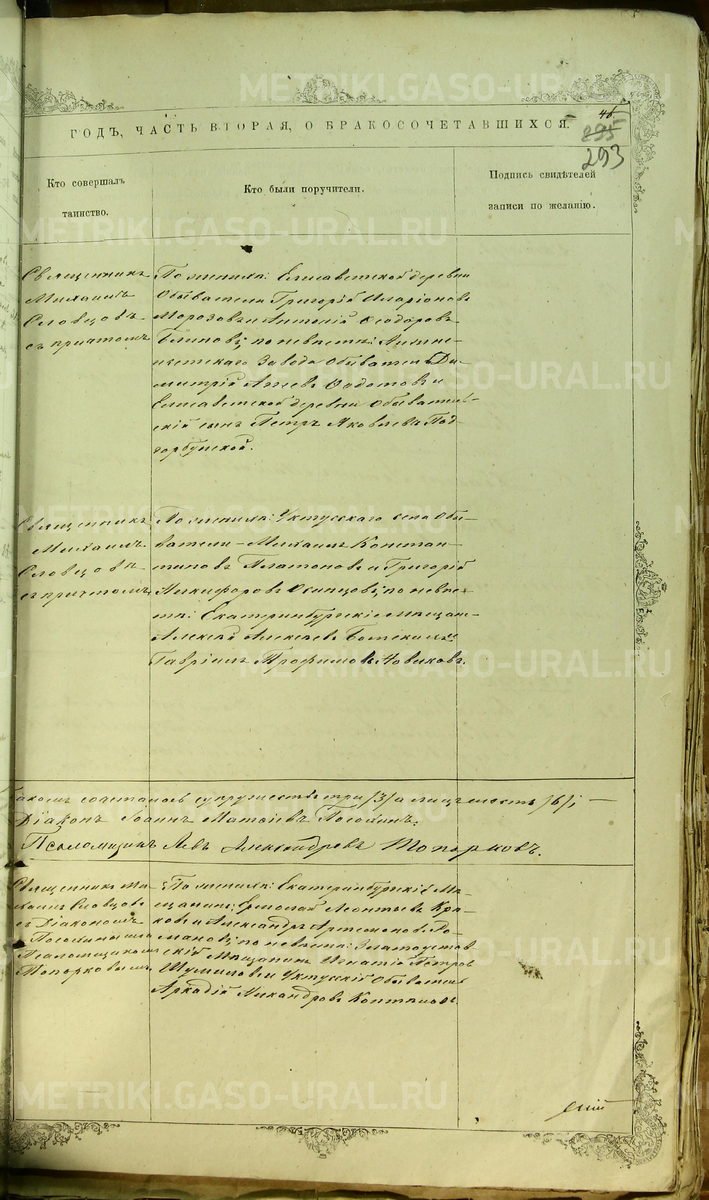 METRIKI.GASO-URAL.RU
46
ГОДЪ, ЧАСТЬ ВТОРАЯ, О БРАКОСОЧЕТАВШИХСЯ.
295
293
Кто совершалъ
таинство.
Кто были поручители.
Подпись свидѣтелей
записи по желанію.
Священникъ
Михаилъ
Словцовъ
съ причтомъ
По женихѣ: Елисаветской деревни
Обыватели Григорій Иларіоновъ
Морозовъ и Антоній Ѳеодоровъ
Блиновъ; по невѣстѣ:
Завода обыватель Ди-
митрій Ѳедотовъ и
Елисаветской деревни обыватель-
скій сынъ Петръ Яковлевъ Под-
горбунской.
Священникъ
Михаилъ
Словцовъ
съ причтомъ
По женихѣ: Уктусскаго села Обы-
ватели – Михаилъ Констан-
тиновъ Платоновъ и Григорій
Никифоровъ Осинцовъ; по невѣс-
тѣ: Екатеринбургскіе мѣщане
Алексѣй Алексѣевъ
Гавріилъ Трофимовъ Новиковъ.
сочеталось супружествъ три /3/ а лицъ шесть /6/. —
Діаконъ Іоаннъ Матѳіевъ
Псаломщикъ Левъ Александровъ Топорковъ.
Священникъ Ми-
хаилъ Словцовъ
съ Діакономъ
Псаломщикомъ
Топорковымъ
По женихѣ: Екатеринбургскіе Мѣ-
щанинъ: Ермолай Леонтьевъ
и Александръ Артемоновъ Ро-
мановъ; по невѣстѣ: Златоустов-
скій Мѣщанинъ Игнатій Петровъ
Шумиловъ и Уктусскій Обыватель
Аркадій Никандровъ
METRIKI.GASO-URAL.RU